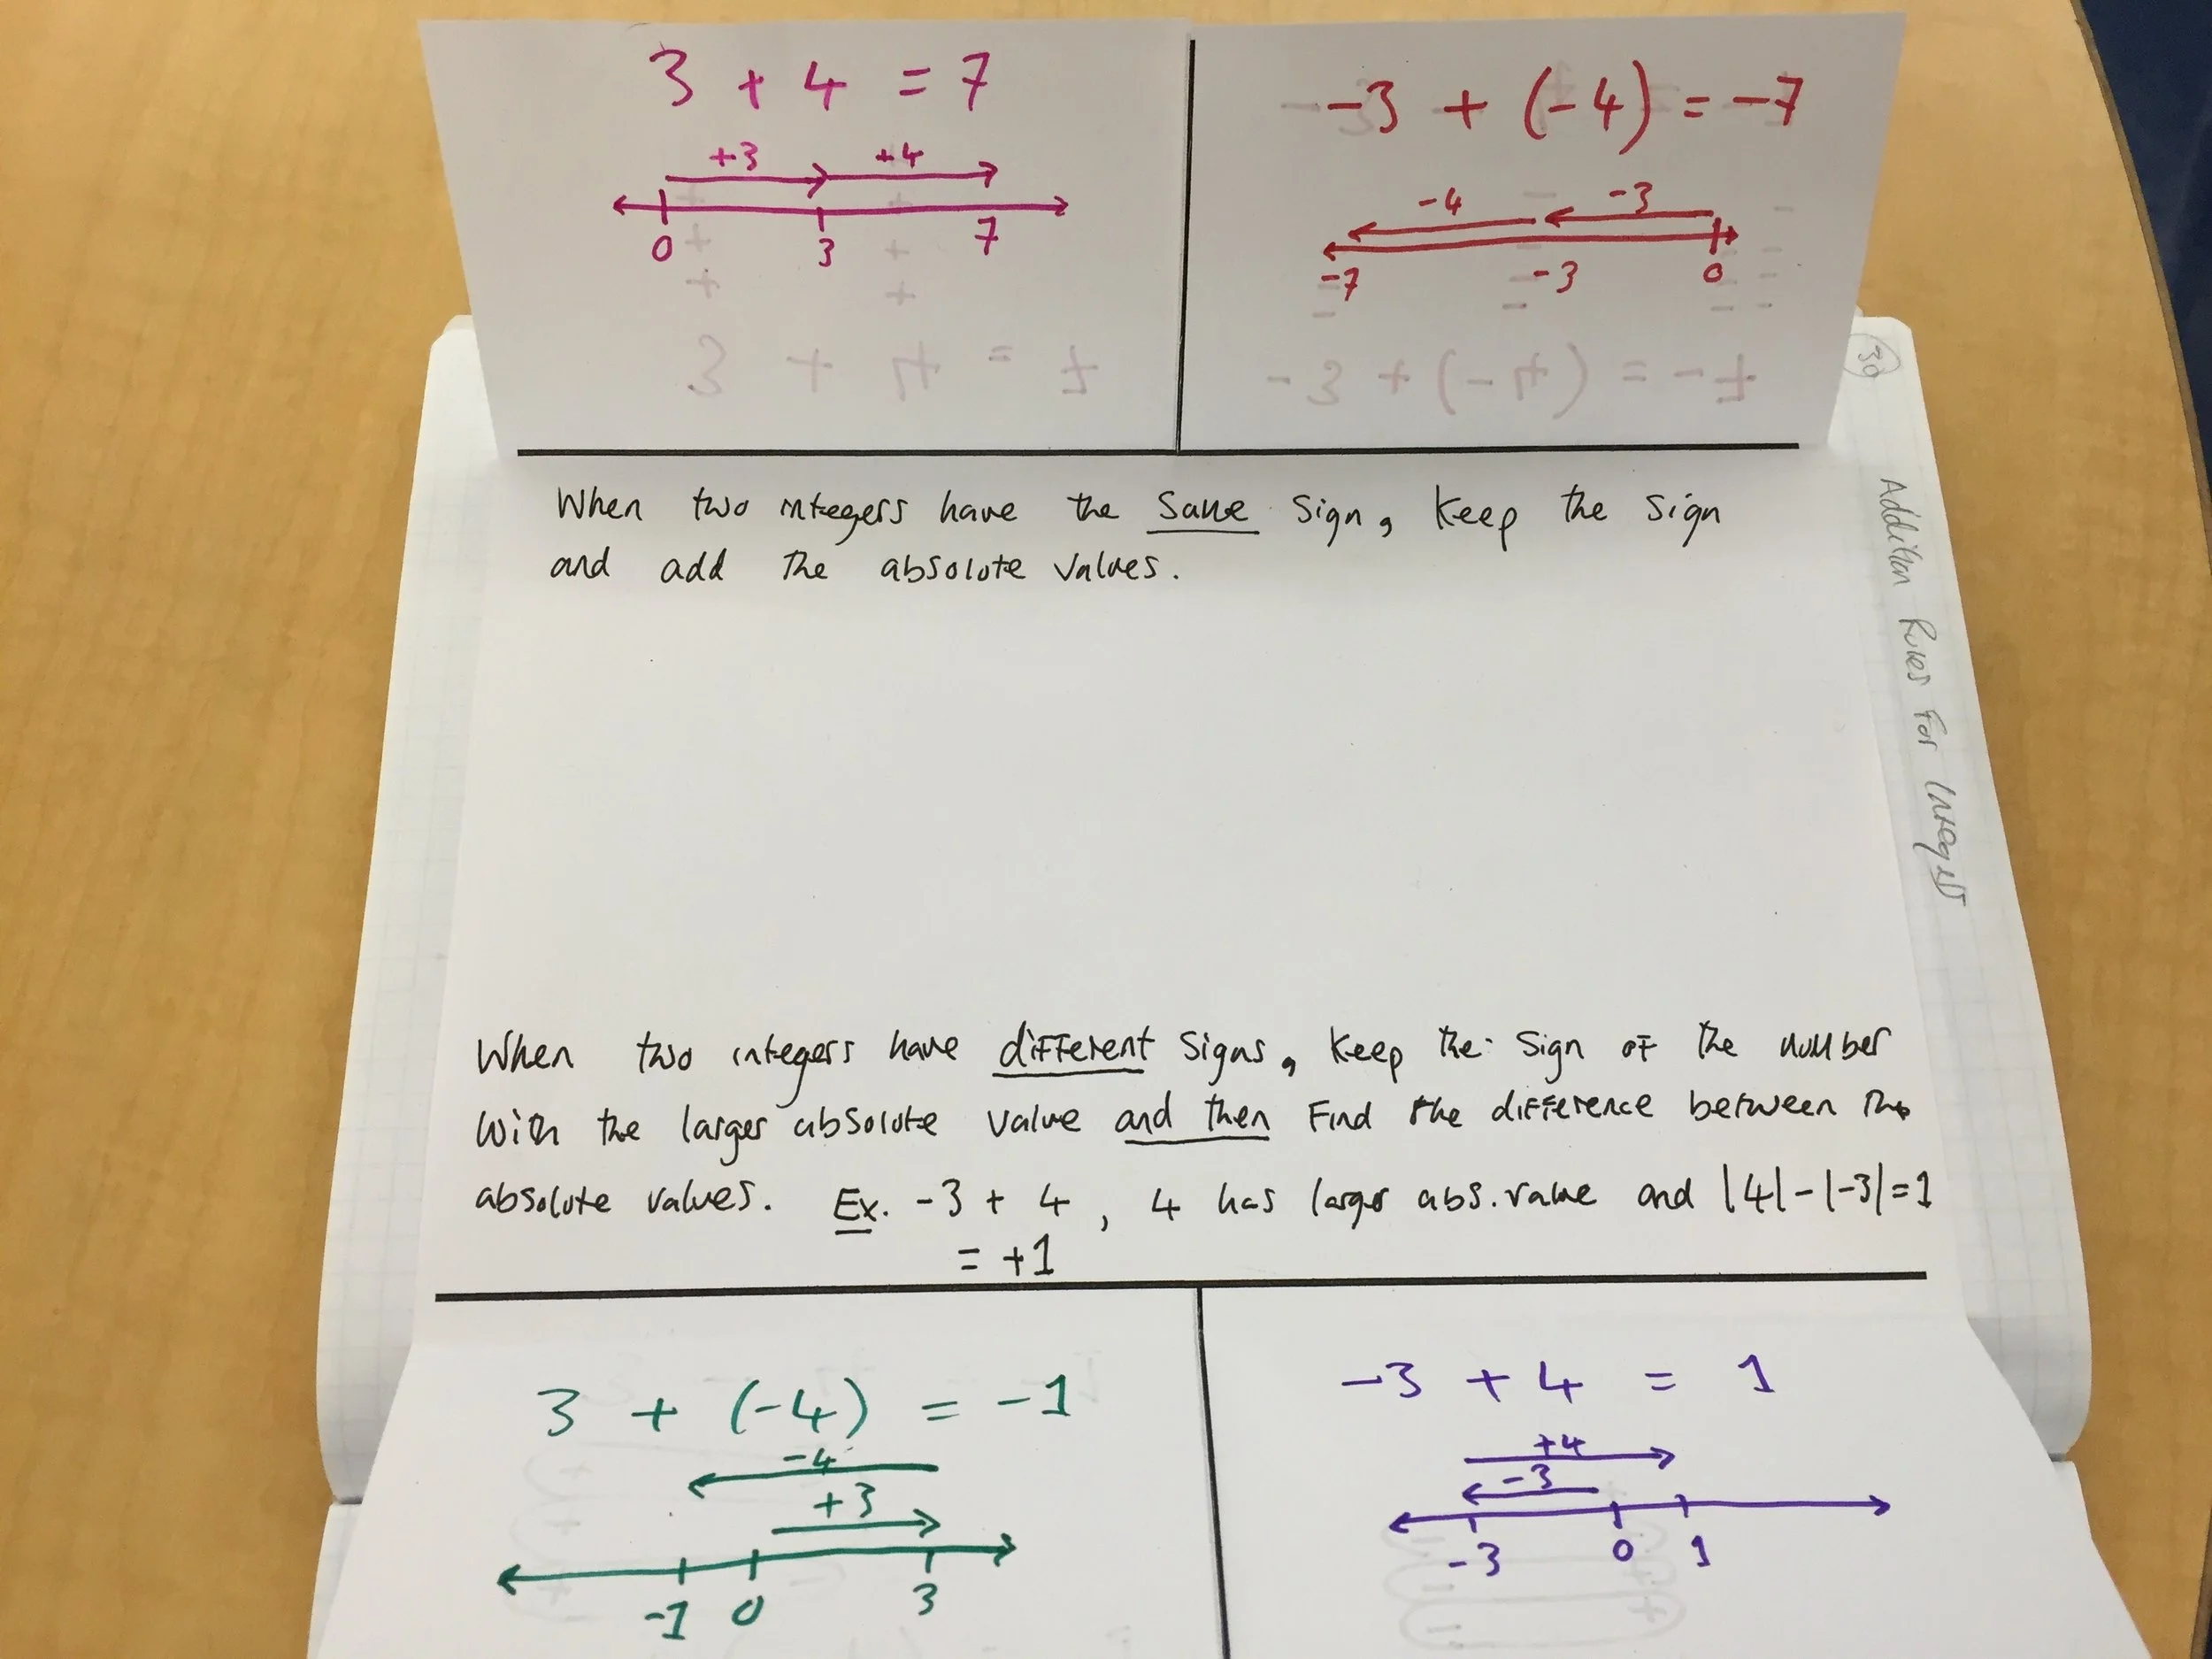 3 + 4 = 7
+3 +4
0 3 7
-3 + (-4) = -7
-4 -3
-7 -3 0
30
Addition Rules For Integers
When two integers have the same sign, keep the sign
and add the absolute values.
When two integers have different signs, keep the sign of the number
with the larger absolute value and then find the difference between the
absolute values. Ex. -3 + 4, 4 has larger abs. value and |4|-|-3|=1
= +1
3 + (-4) = -1
-4
+3
-1 0 3
-3 + 4 = 1
+4
-3
-3 0 1